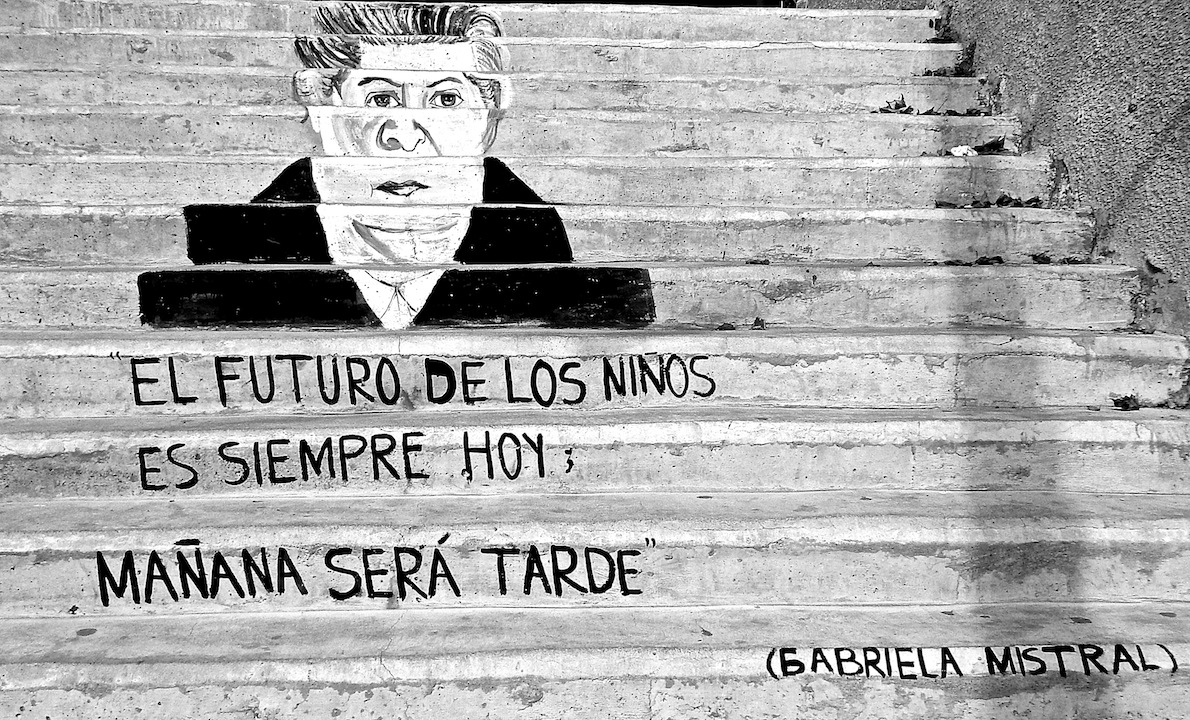 "EL FUTURO DE LOS NIÑOS
ES SIEMPRE HOY;
MAÑANA SERÁ TARDE"
(GABRIELA MISTRAL)